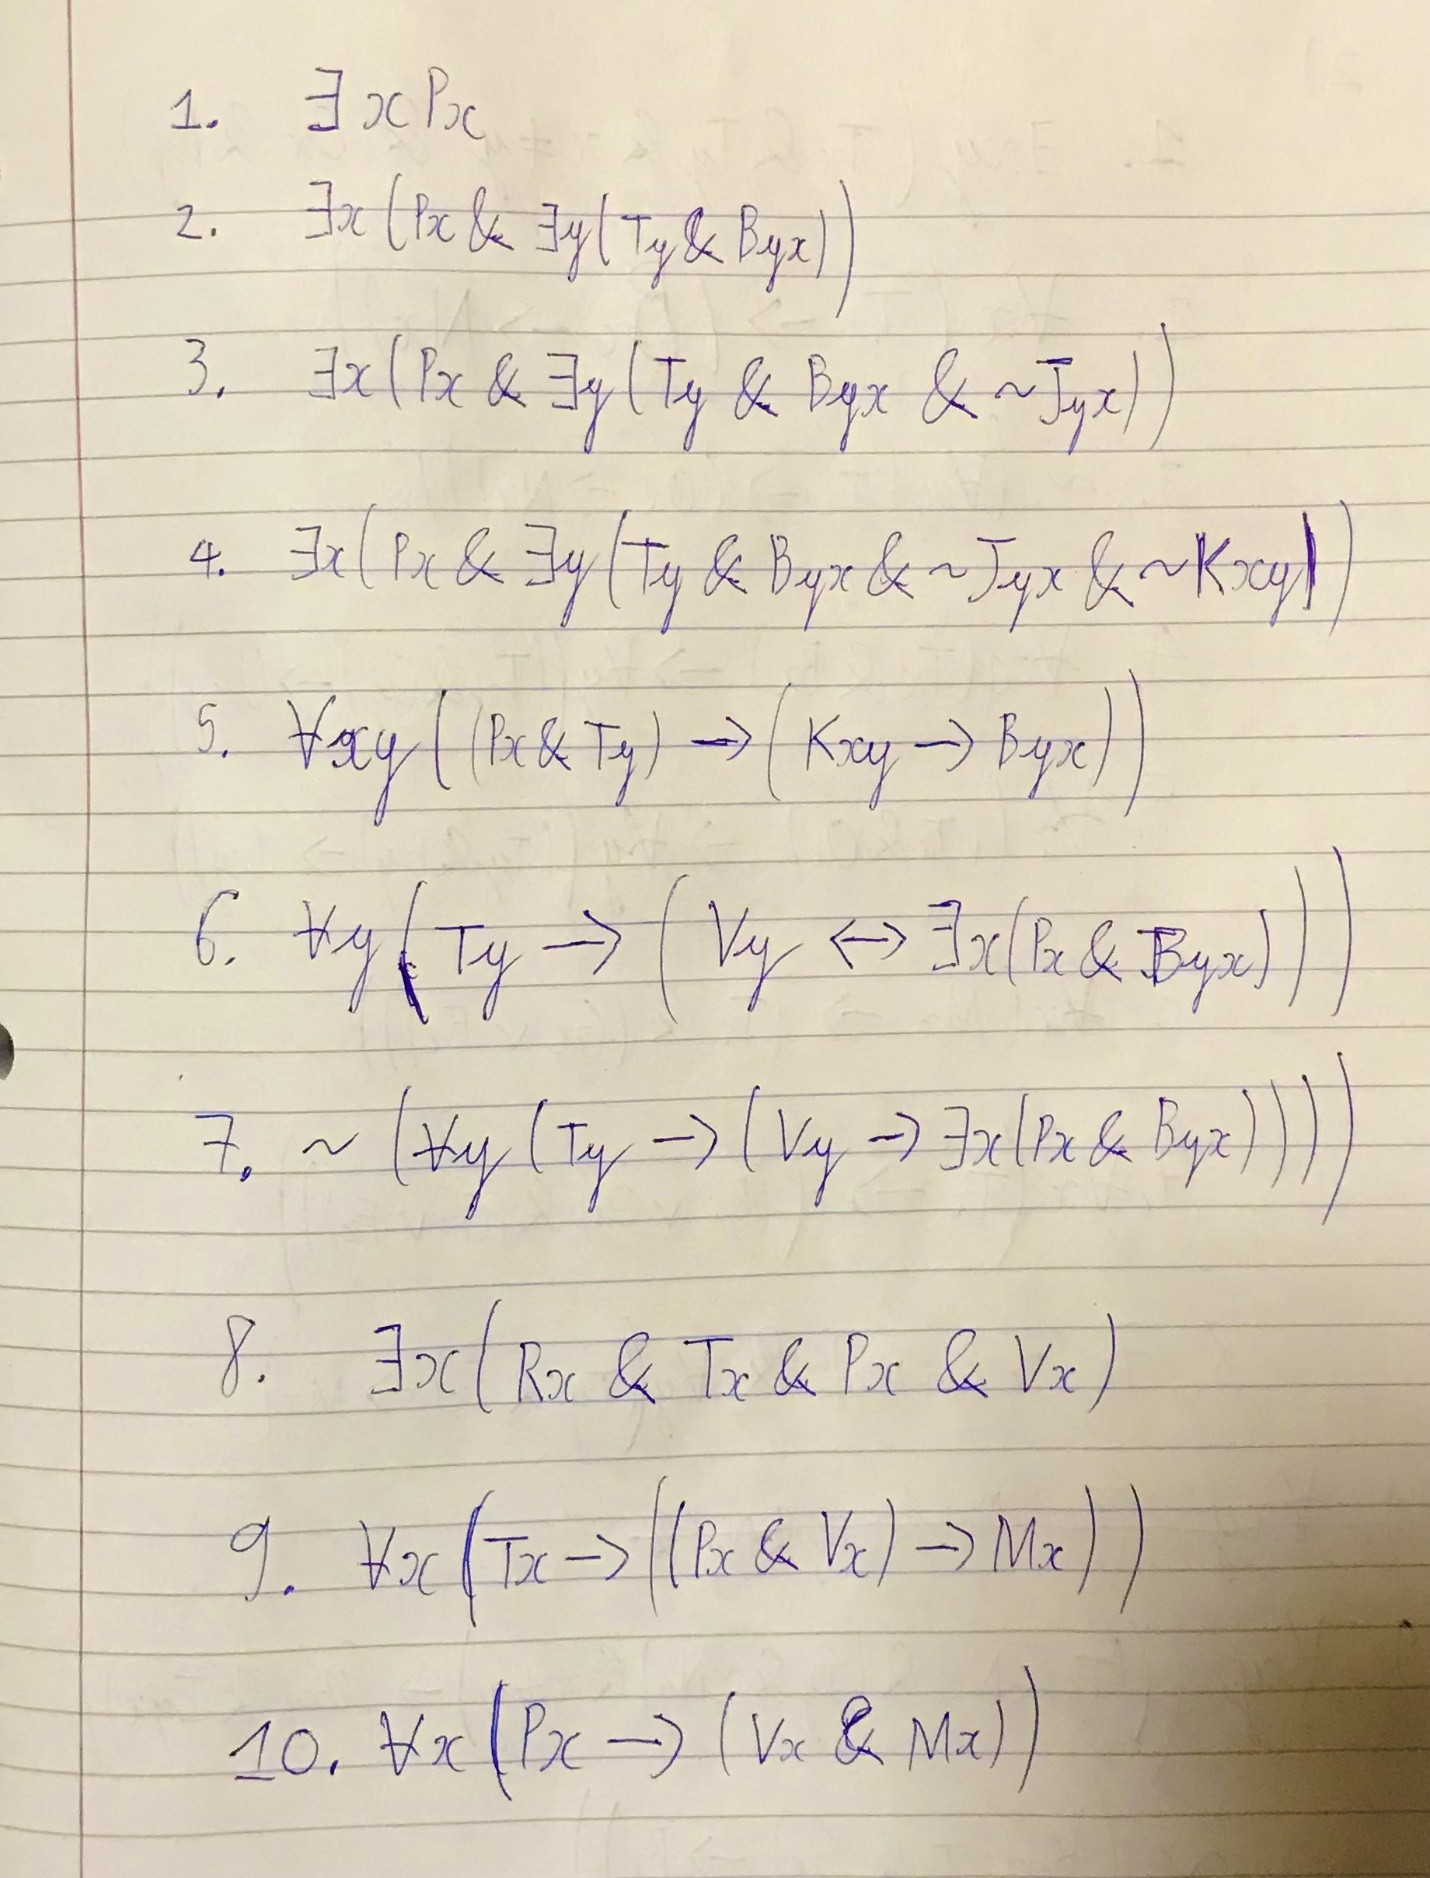 1. ∃xPx
2. ∃x(Px & ∃y(Ty & Byx))
3. ∃x(Px & ∃y(Ty & Byx & ~Jyx))
4. ∃x(Px & ∃y(Ty & Byx & ~Jyx & ~Kxy))
5. ∀xy((Px & Ty) → (Kxy → Byx))
6. ∀y(Ty → (Vy ↔ ∃x(Px & Byx)))
7. ~(∀y(Ty → (Vy → ∃x(Px & Byx))))
8. ∃x(Rx & Tx & Px & Vx)
9. ∀x(Tx → ((Px & Vx) → Mx))
10. ∀x(Px → (Vx & Mx))